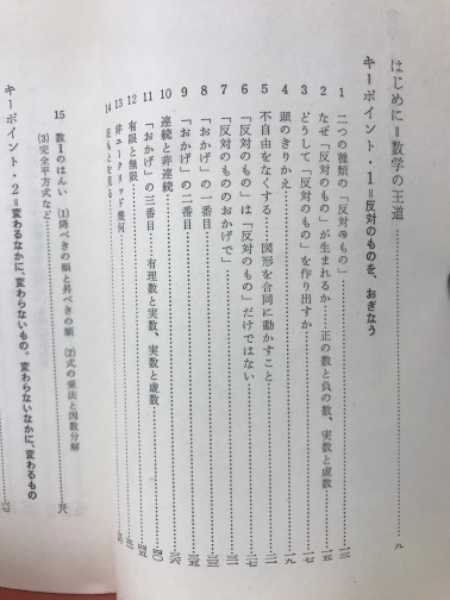 はじめに=数学の王道……九
キーポイント・1=反対のものを、おぎなう
1 二つの種類の「反対のもの」……一三
2 なぜ「反対のもの」が生まれるか……正の数と負の数、実数と虚数……一五
3 どうして「反対のもの」を作り出すか……一七
4 頭のきりかえ……一九
5 不自由をなくする……図形を合同に動かすこと……二三
6 「反対のもの」は「反対のもの」だけではない……二七
7 「反対のもののおかげで」……三一
8 「おかげ」の一番目……三三
9 「おかげ」の二番目……三五
10 連続と非連続……三六
11 「おかげ」の三番目……有理数と実数、実数と虚数……四〇
12 有限と無限……四五
13 非ユークリッド幾何
14
15 数Ⅰのはんい (1)降べきの順と昇べきの順 (2)式の乗法と因数分解
(3)完全平方式など
キーポイント・2=変わるなかに、変わらないもの。変わらないなかに、変わるもの